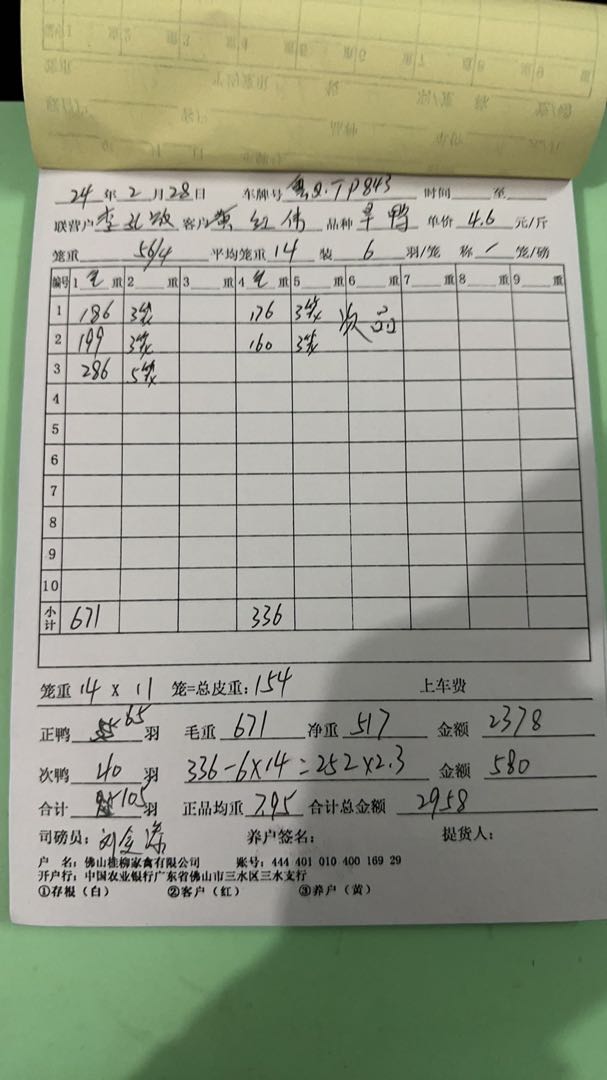 24 年 2 月 28 日 车牌号 粤Q·TP843 时间 至
联营户 李 客户 黄红伟 品种 旱鸭 单价 4.6 元/斤
笼重 56/4 平均笼重 14 装 6 羽/笼 称 笼/磅
编号 1 毛 重 2 重 3 重 4 毛 重 5 重 6 重 7 重 8 重 9 重
1 186 3笼 176 3笼 次品
2 199 3笼 160 3笼
3 286 5笼
4
5
6
7
8
9
10
小计 671 336
笼重 14 x 11 笼=总皮重: 154 上车费
正鸭 65 羽 毛重 671 净重 517 金额 2378
次鸭 40 羽 336-6x14=252x2.3 金额 580
合计 105 羽 正品均重 7.95 合计总金额 2958
司磅员: 刘 养户签名: 提货人:
户 名: 佛山桂柳家禽有限公司 账号: 444 401 010 400 169 29
开户行: 中国农业银行广东省佛山市三水区三水支行
①存根（白） ②客户（红） ③养户（黄）